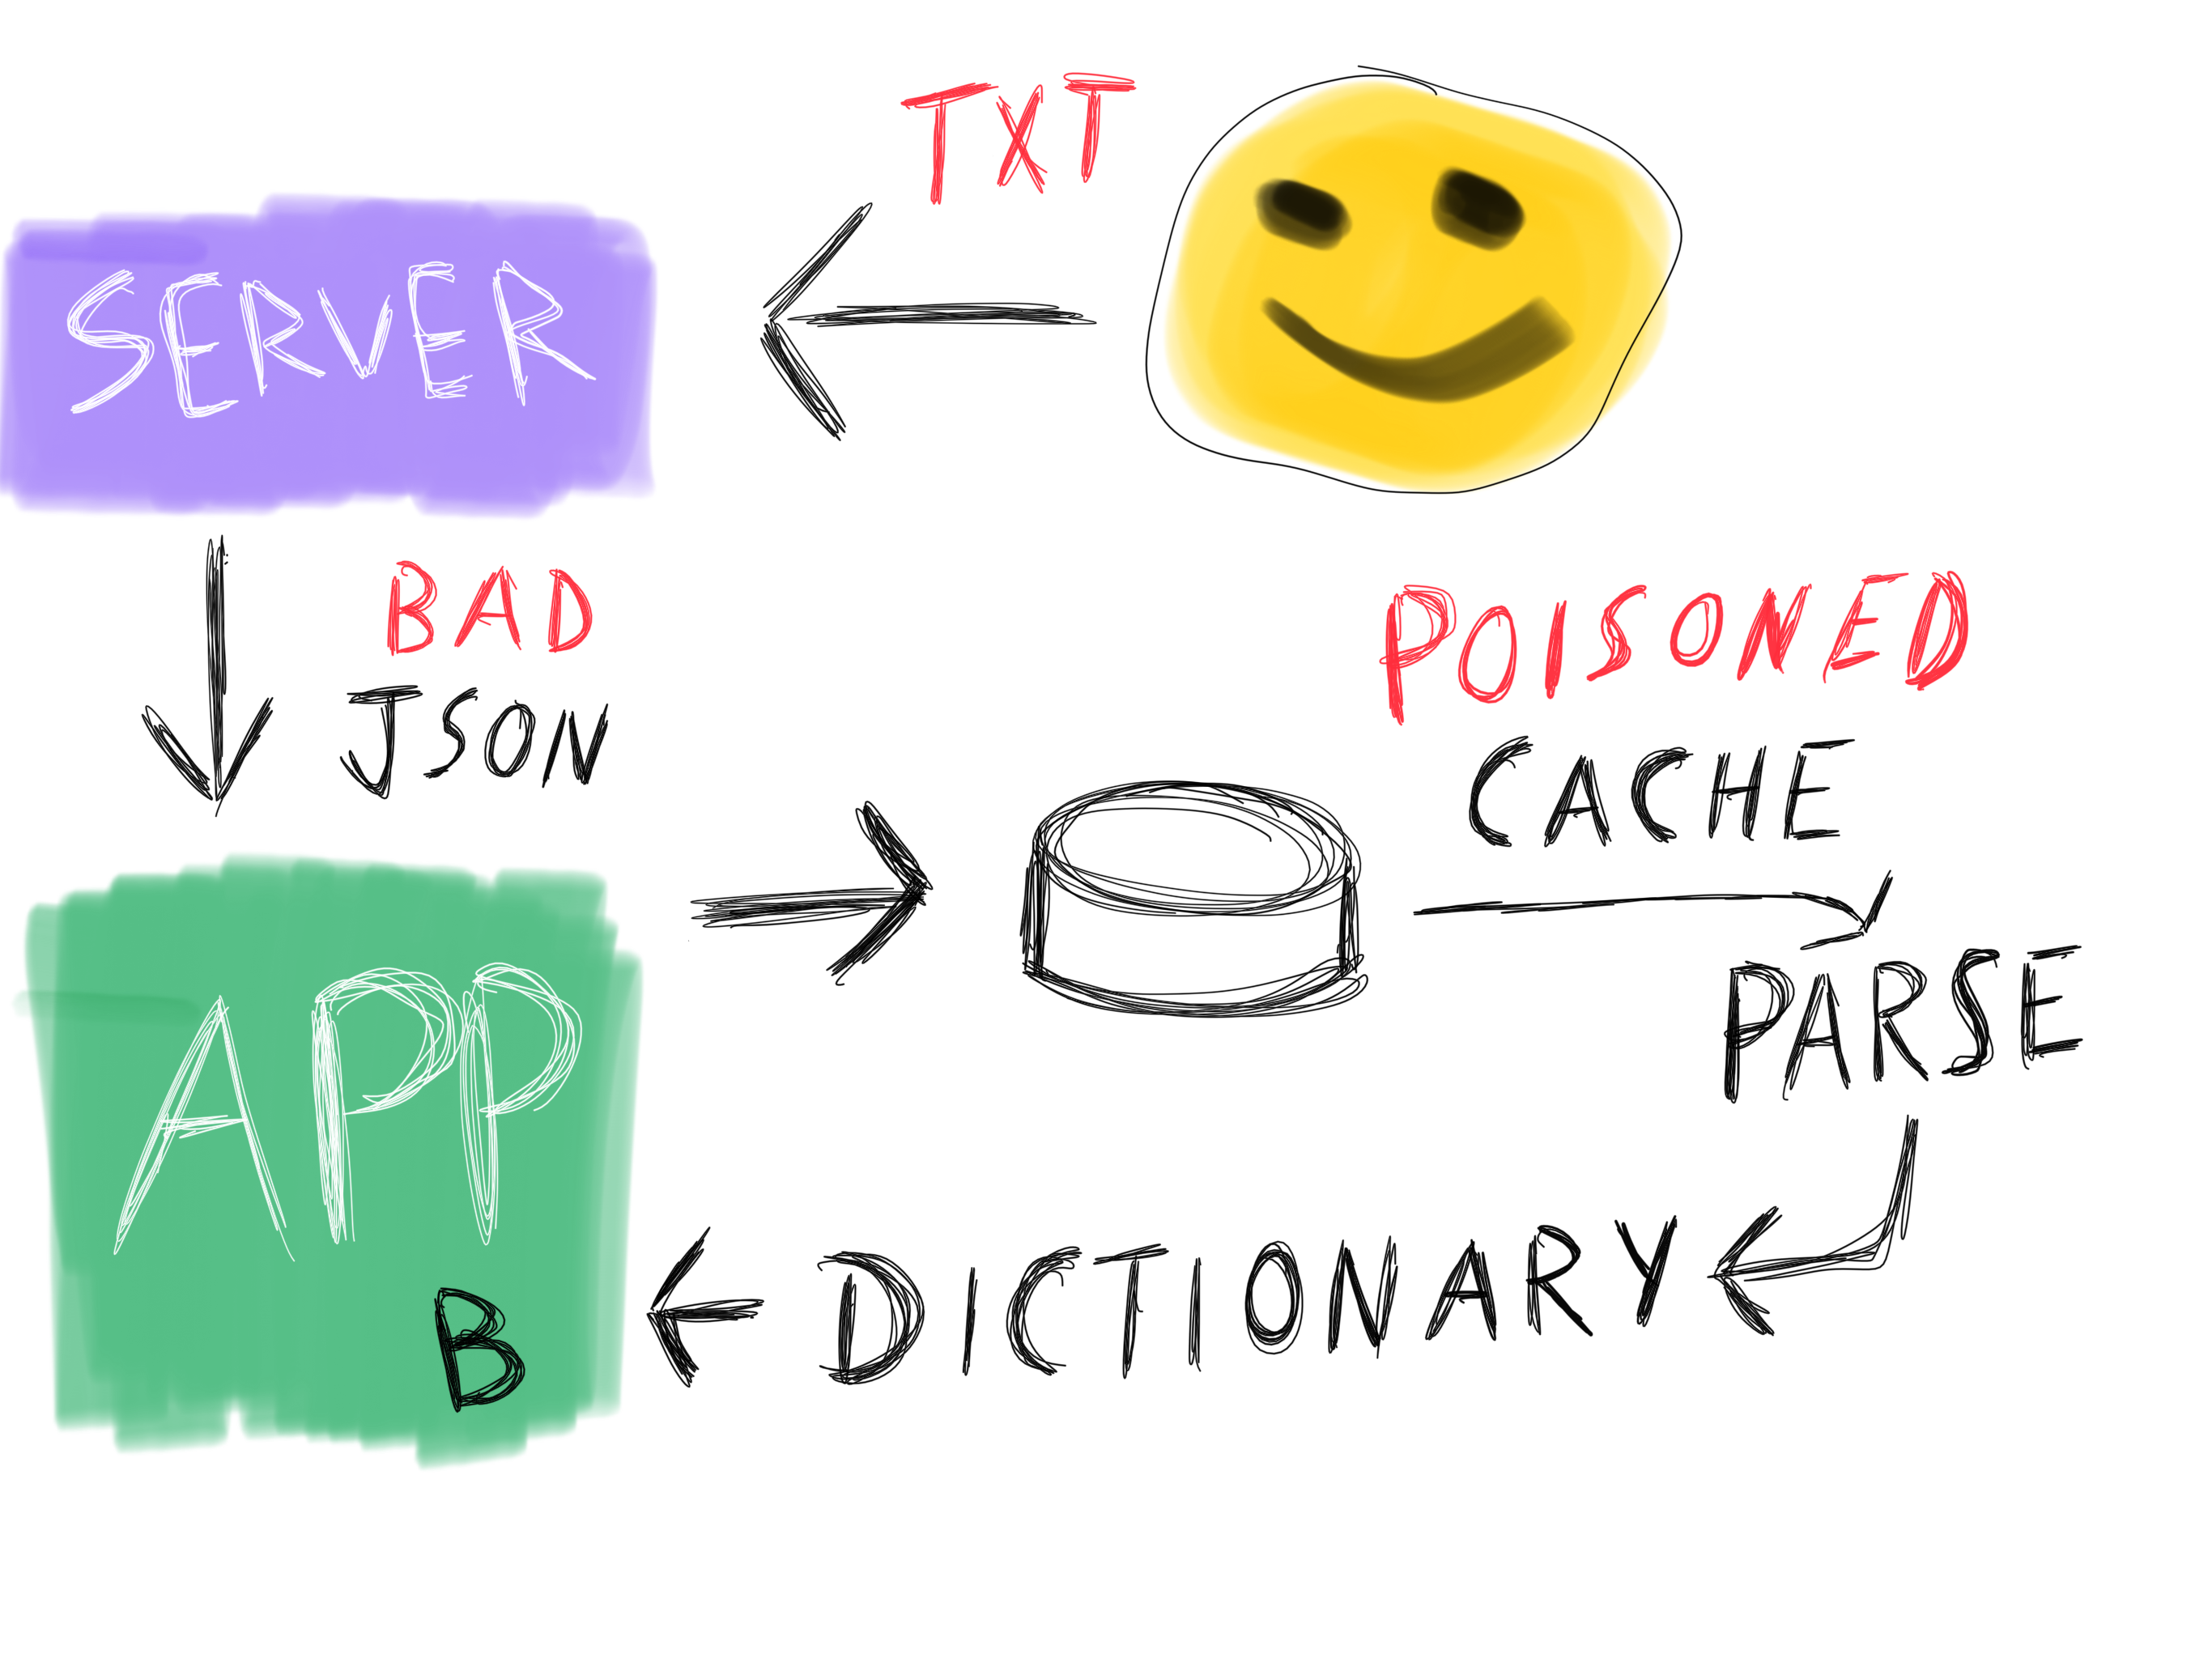 TXT
SERVER
BAD
JSON
POISONED
CACHE
APP
PARSE
B
DICTIONARY